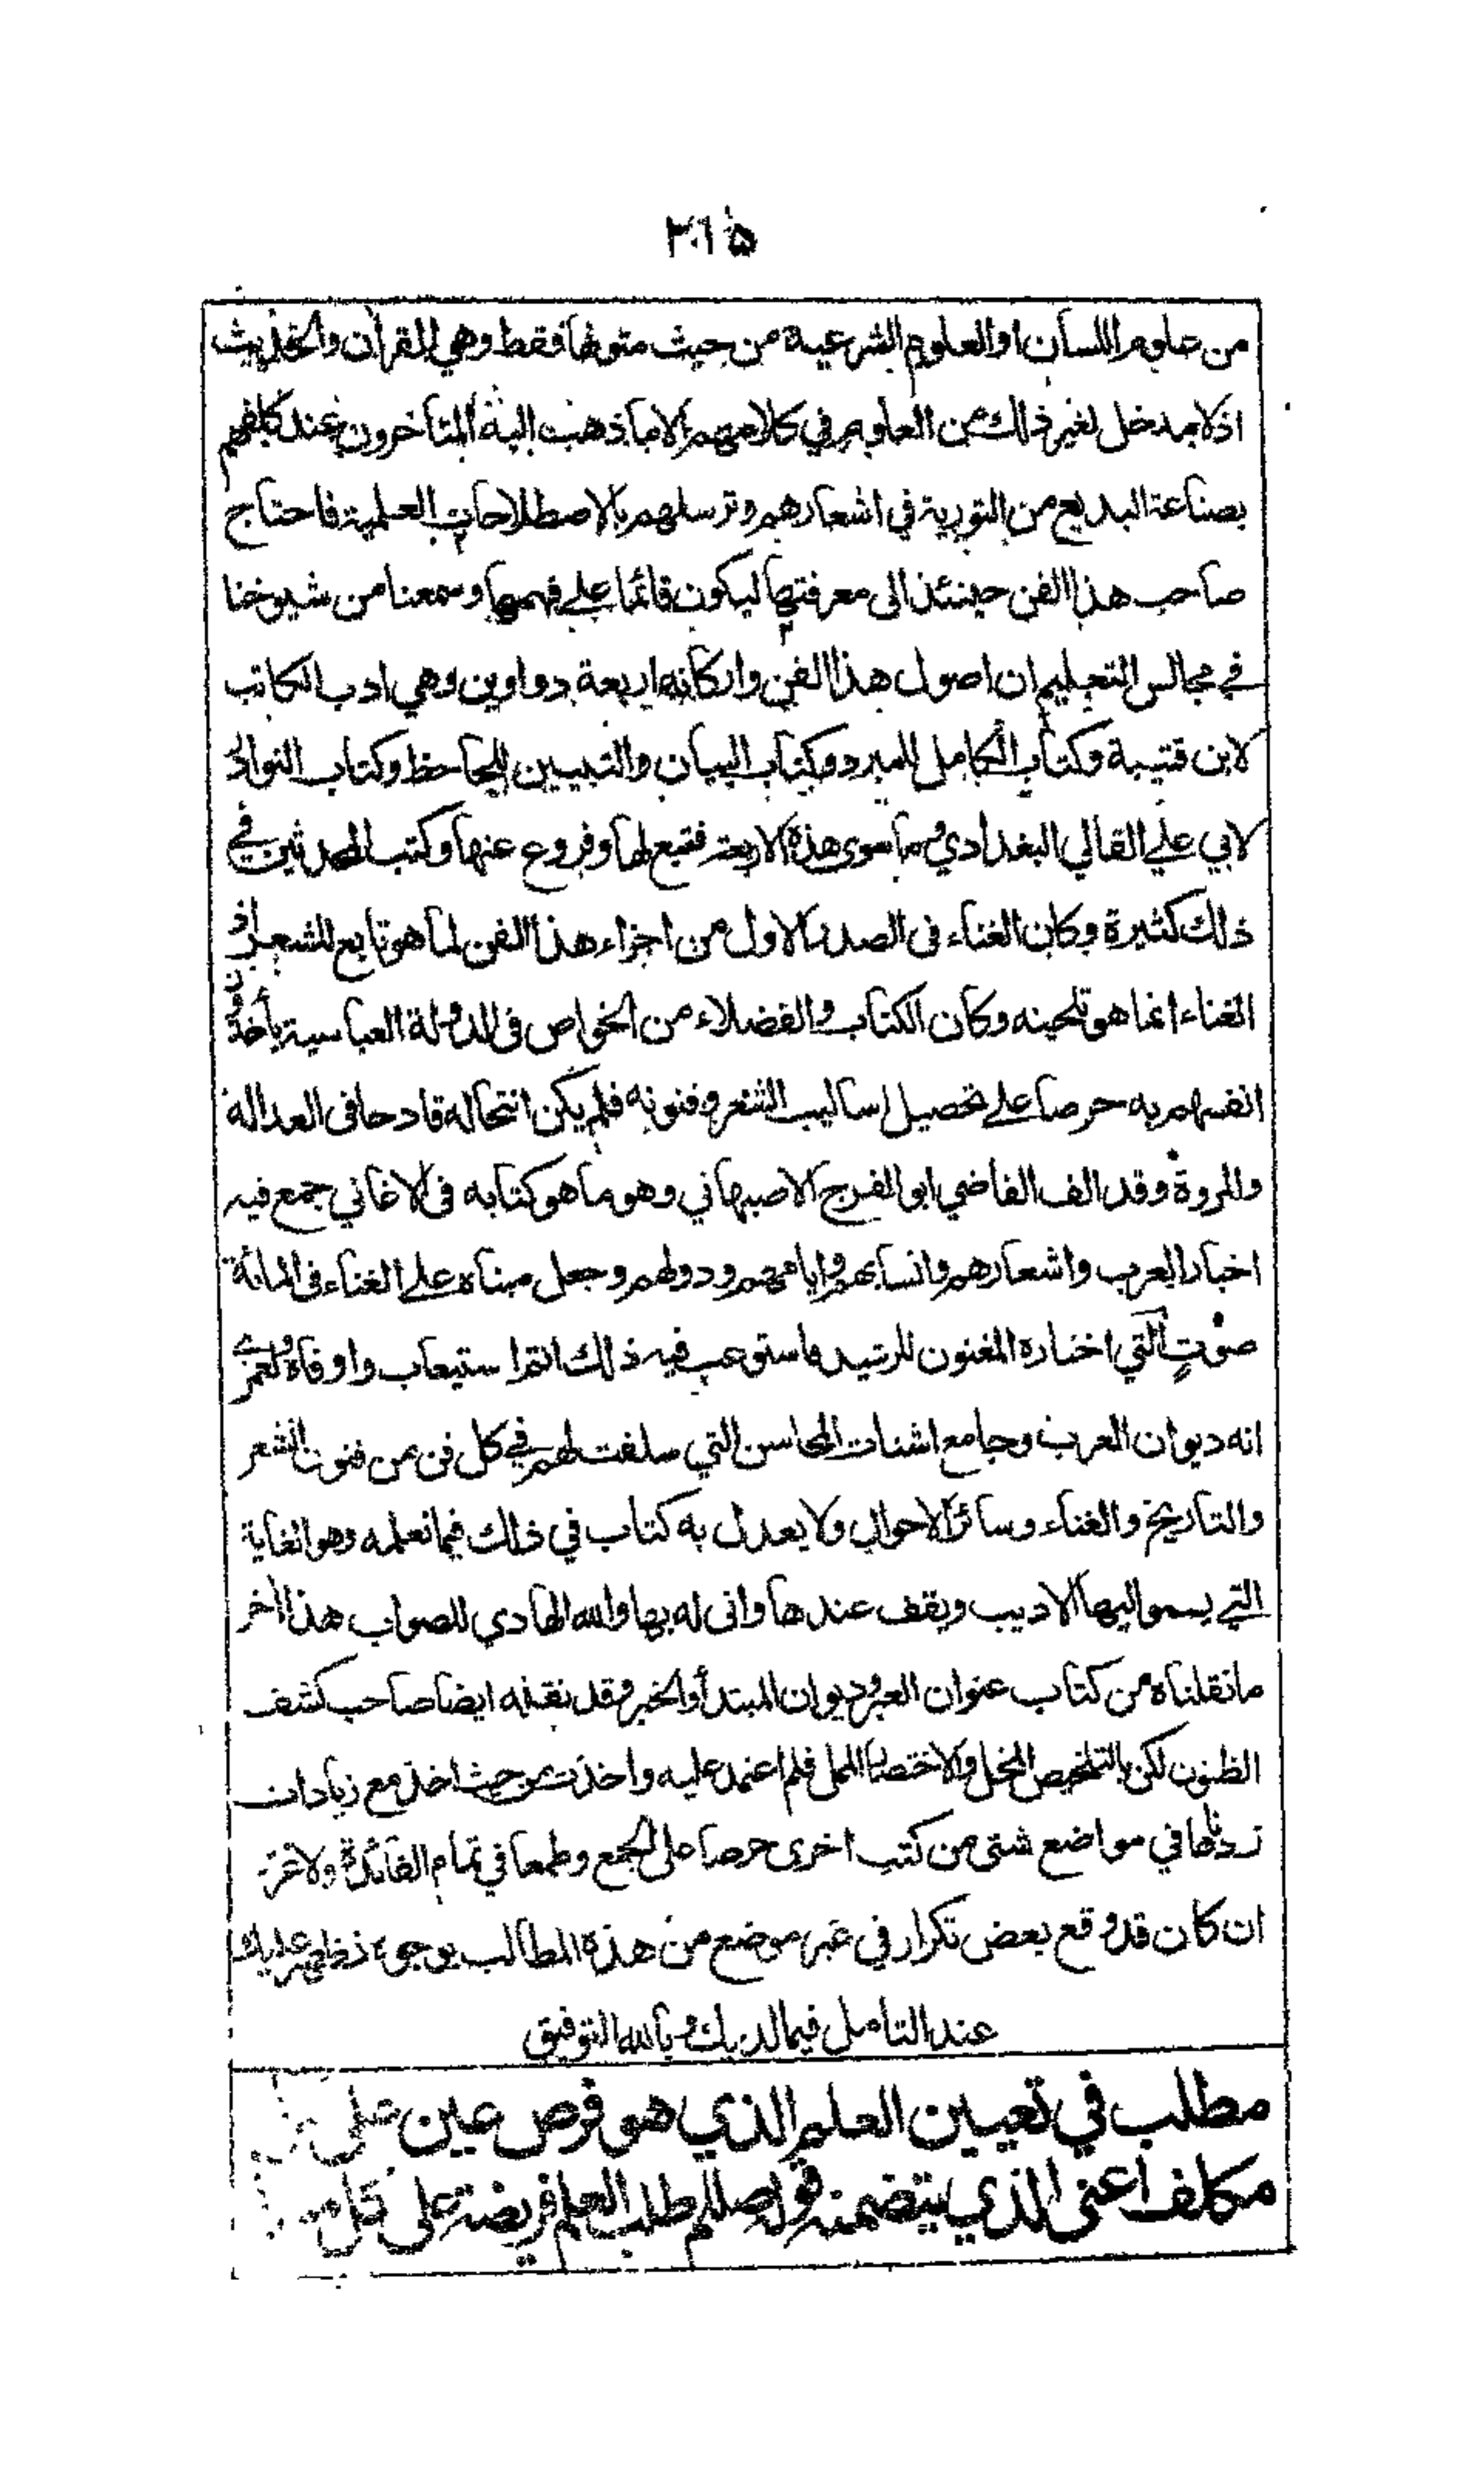 ٢١٥
من علوم اللسان او العلوم الشرعية من حيث متونها فقط وهي القرآن والحديث
اذ لا مدخل لغير ذلك من العلوم في كلامهم الا ما ذهب اليه المتأخرون عند كلفهم
بصناعة البديع من التورية في اشعارهم وترسلهم بالاصطلاحات العلمية فاحتاج
صاحب هذا الفن حينئذ الى معرفتها ليكون قائما على فهمها وسمعنا من شيوخنا
في مجالس التعليم ان اصول هذا الفن واركانه اربعة دواوين وهي ادب الكاتب
لابن قتيبة وكتاب الكامل للمبرد وكتاب البيان والتبيين للجاحظ وكتاب النوادر
لابي علي القالي البغدادي وما سوى هذه الاربعة فتبع لها وفروع عنها وكتب المحدثين في
ذلك كثيرة وكان الغناء فى الصدر الاول من اجزاء هذا الفن لما هو تابع للشعر اذ
الغناء انما هو تلحينه وكان الكتاب والفضلاء من الخواص فى الدولة العباسية يأخذون
انفسهم به حرصا على تحصيل اساليب الشعر وفنونه فلم يكن انتحاله قادحا فى العدالة
والمروة وقد الف القاضي ابو الفرج الاصبهاني وهو ما هو كتابه فى الاغاني جمع فيه
اخبار العرب واشعارهم وانسابهم وايامهم ودولهم وجعل مبناه على الغناء فى المائة
صوت التي اختاره المغنون للرشيد فاستوعب فيه ذلك اتم استيعاب واوفاه ولعمري
انه ديوان العرب وجامع اشتات المحاسن التي سلفت لهم في كل فن من فنون الشعر
والتاريخ والغناء وسائر الاحوال ولا يعدل به كتاب في ذلك فيما نعلمه وهو الغاية
التي يسمو اليها الاديب ويقف عندها وانى له بها والله الهادي للصواب هذا اخر
ما نقلناه من كتاب عنوان العبر وديوان المبتدأ والخبر وقد نقله ايضا صاحب كشف
الظنون لكن بالتلخيص المخل والاختصار الممل فلم اعتمد عليه واخذت من حيث اخذ مع زيادات
زدتها في مواضع شتى من كتب اخرى حرصا على الجمع وطمعا في تمام الفائدة ولا غرو
ان كان قد وقع بعض تكرار في غير موضع من هذه المطالب بوجوه تظهر عليك
عند التامل فيما لديك وبالله التوفيق
مطلب في تعيين العلم الذي هو فرض عين على
مكلف اعنى الذي يتضمنه قوله صللم طلب العلم فريضة على كل